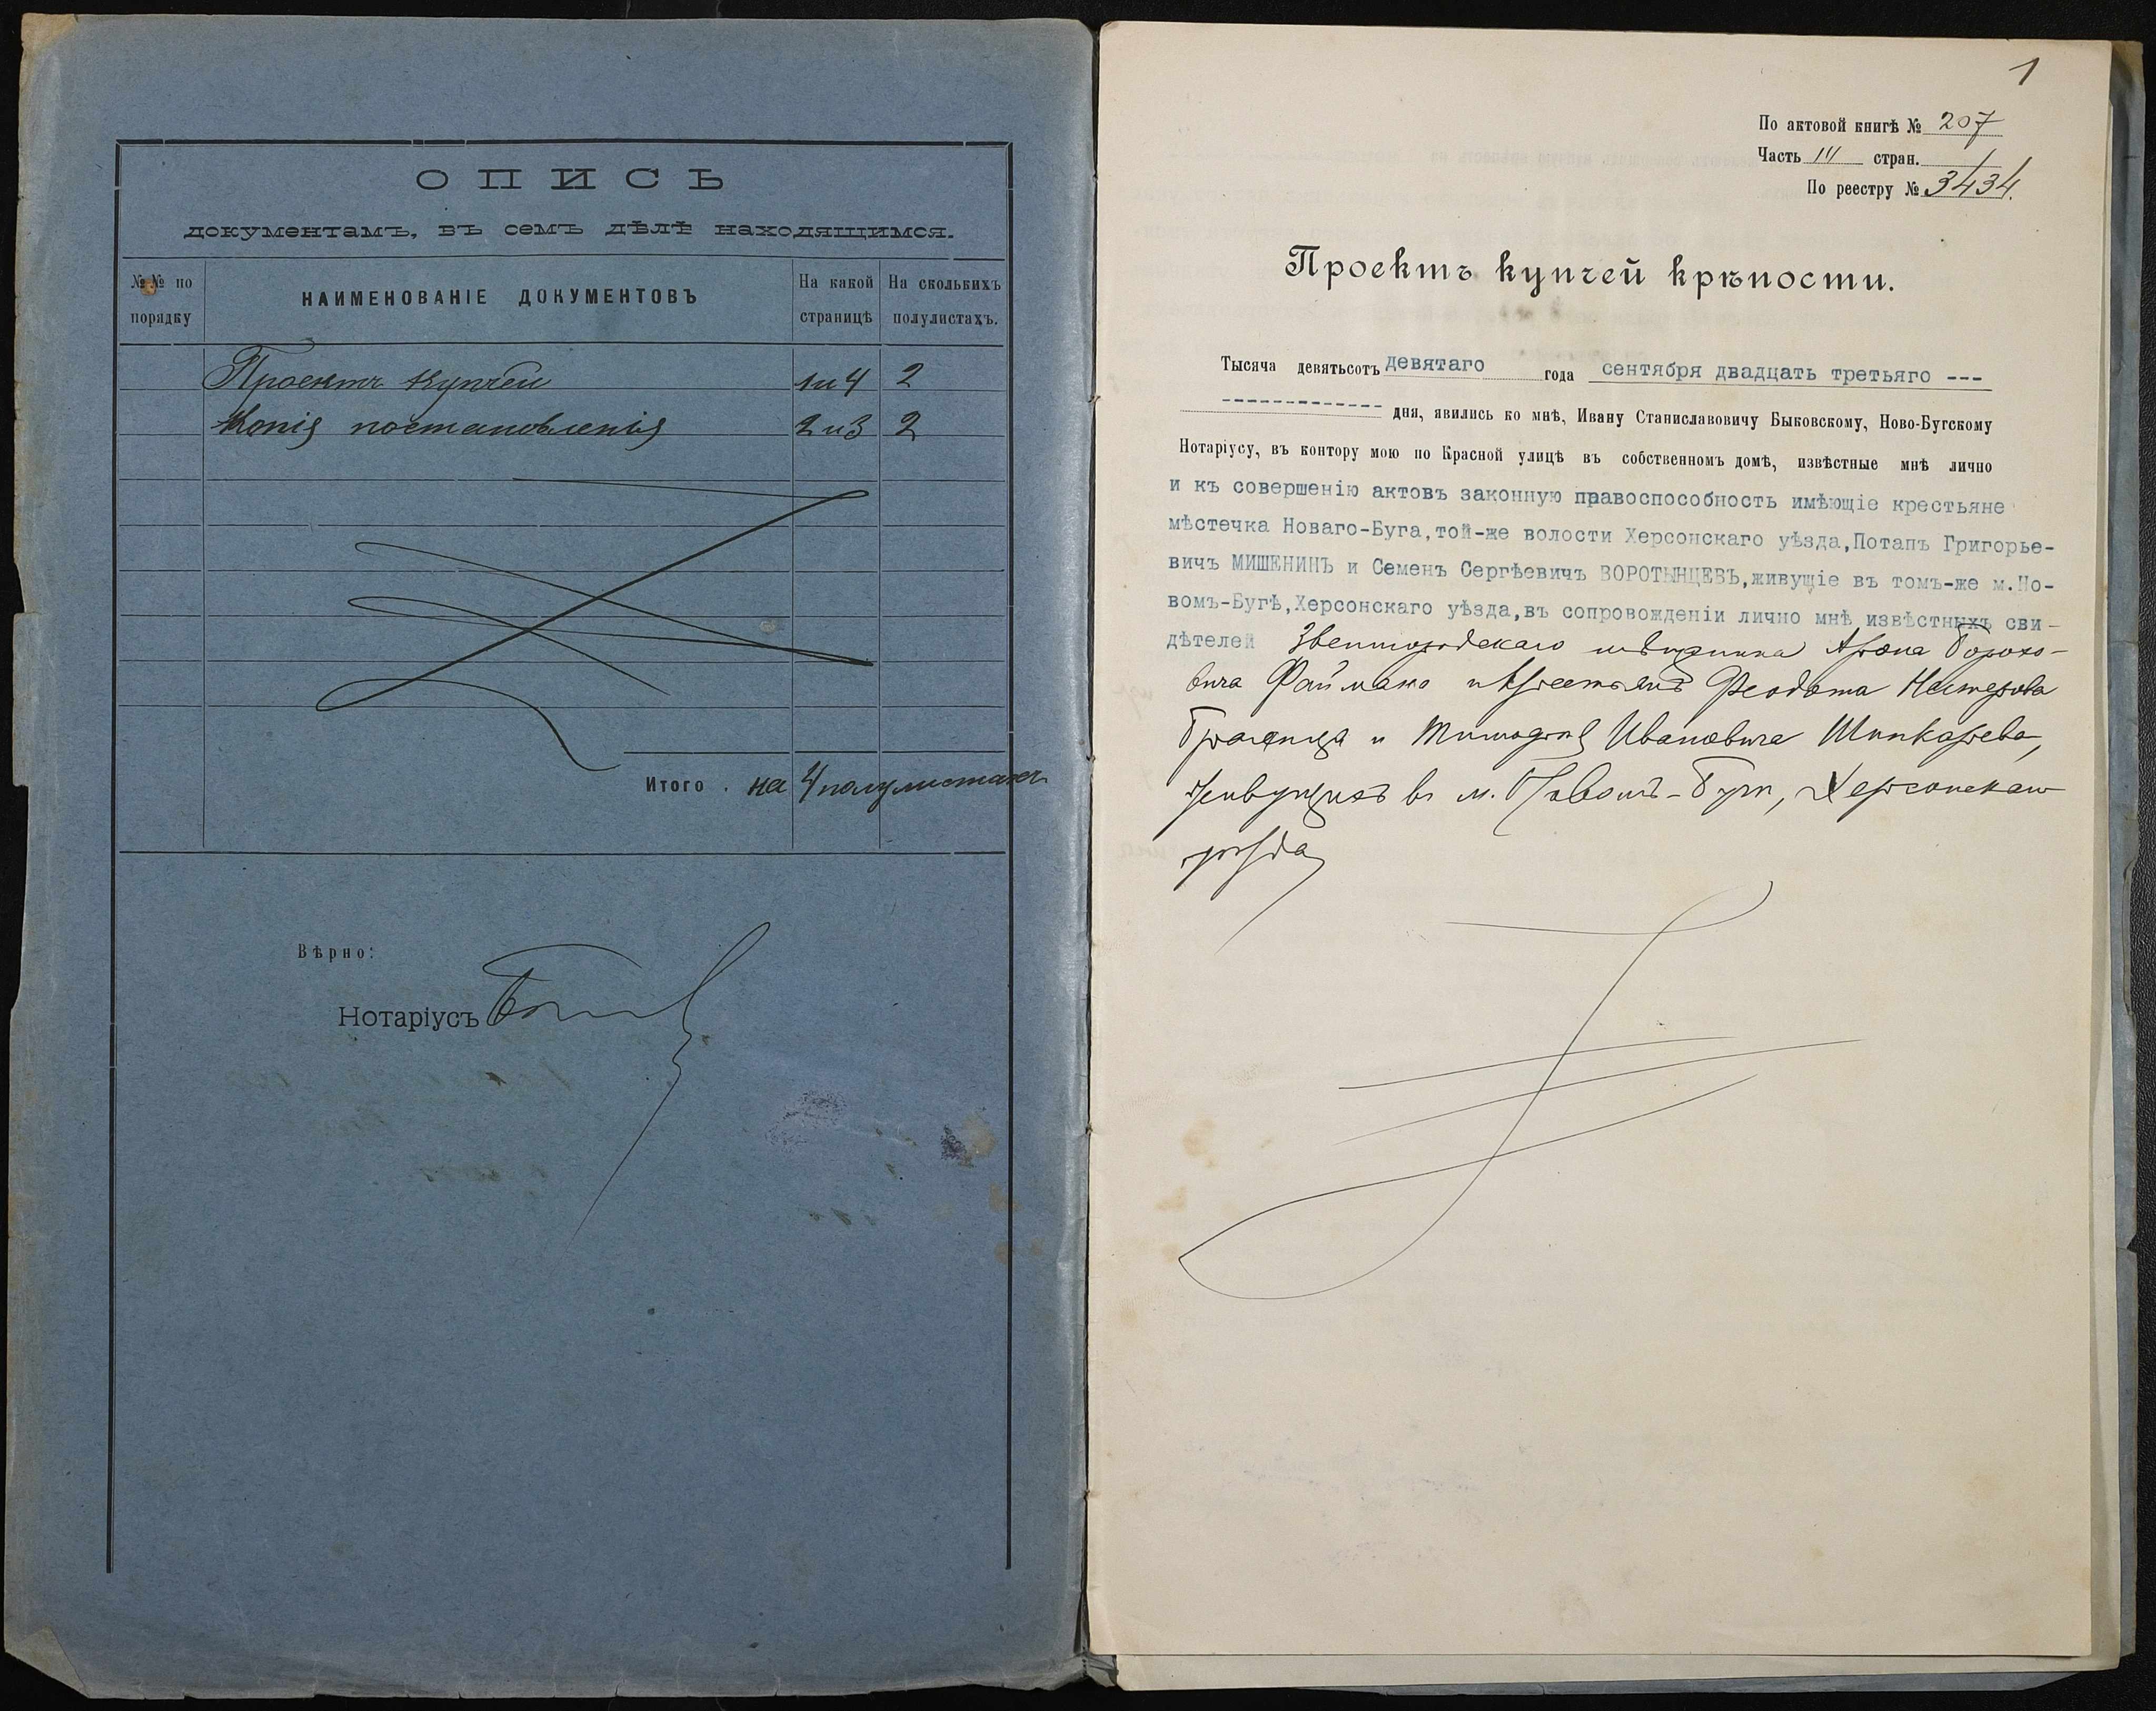 ОПИСЬ
документамъ, въ семъ дѣлѣ находящимся.
№№ по порядку
НАИМЕНОВАНІЕ ДОКУМЕНТОВЪ
На какой страницѣ
На сколькихъ полулистахъ.
Проектъ купчей 1 и 4 2
Копія постановленія 2 и 3 2
Итого . на 4 полулистахъ
Вѣрно:
Нотаріусъ
1
По актовой книгѣ № 207
Часть III стран.
По реестру № 3434.
Проектъ купчей крѣпости.
Тысяча девятьсотъ девятаго года сентября двадцать третьяго ---
------------- дня, явились ко мнѣ, Ивану Станиславовичу Быковскому, Ново-Бугскому
Нотаріусу, въ контору мою по Красной улицѣ въ собственномъ домѣ, извѣстные мнѣ лично
и къ совершенію актовъ законную правоспособность имѣющіе крестьяне
мѣстечка Новаго-Буга,той-же волости Херсонскаго уѣзда,Потапъ Григорье-
вичъ МИШЕНИНЪ и Семенъ Сергѣевичъ ВОРОТЫНЦЕВЪ,живущіе въ томъ-же м.Но-
вомъ-Бугѣ,Херсонскаго уѣзда,въ сопровожденіи лично мнѣ извѣстныхъ сви-
дѣтелей Звенигородскаго мѣщанина Арона
вича Файмана и крестьянъ Феодота Нестерова
и Тимофея Ивановича Шинкарева,
живущихъ въ м. Новомъ-Бугѣ, Херсонскаго
уѣзда